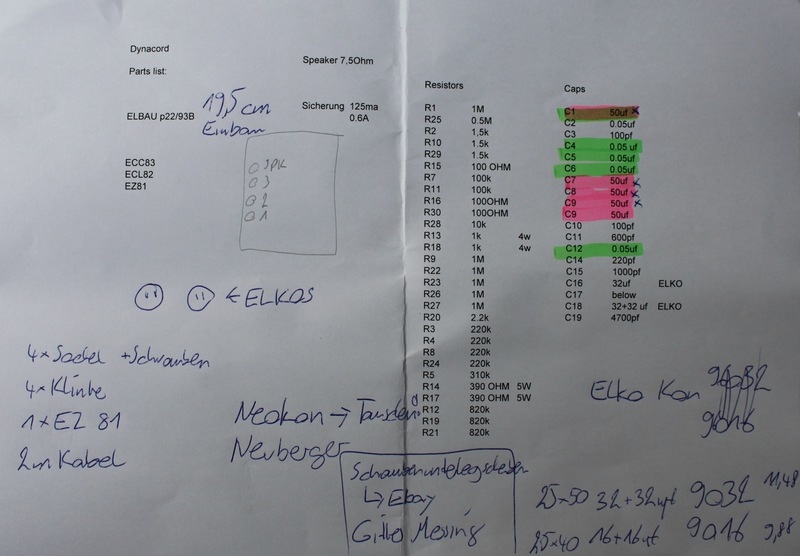 Dynacord
Speaker 7,5Ohm
Parts list:
19,5 cm
Einbau
ELBAU p22/93B
Sicherung 125ma
0.6A
ECC83
ECL82
EZ81
SPK
3
2
1
← ELKOS
4x Sockel + Schrauben
4x Klinke
1x EZ 81
2m Kabel
Neokon →
Neuberger
Resistors
R1 1M
R25 0.5M
R2 1,5k
R10 1.5k
R29 1.5k
R15 100 OHM
R7 100k
R11 100k
R16 100OHM
R30 100OHM
R28 10k
R13 1k 4w
R18 1k 4w
R9 1M
R22 1M
R23 1M
R26 1M
R27 1M
R20 2.2k
R3 220k
R4 220k
R8 220k
R24 220k
R5 310k
R14 390 OHM 5W
R17 390 OHM 5W
R12 820k
R19 820k
R21 820k
Caps
C1 50uf x
C2 0.05uf
C3 100pf
C4 0.05 uf
C5 0.05uf
C6 0.05uf
C7 50uf x
C8 50uf x
C9 50uf x
C9 50uf
C10 100pf
C11 600pf
C12 0.05uf
C14 220pf
C15 1000pf
C16 32uf ELKO
C17 below
C18 32+32 uf ELKO
C19 4700pf
Elko Kon
9016
↳ Ebay
25x50 32+32µf 9032 11,48
25x40 16+16uf 9016 9,88